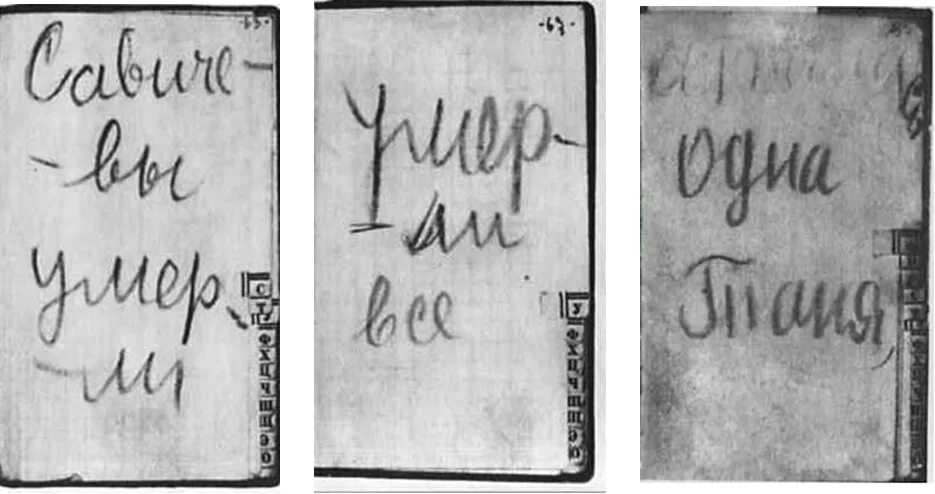 Савиче-
-вы
умер-
-ли
Умер-
-ли
все
одна
Таня